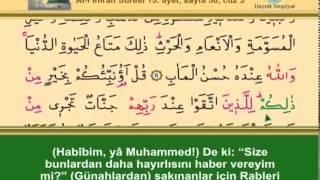 Âl-i İmrân Sûresi 15. âyet, sayfa 50, cüz 3
Hayrât Neşriyat
الْمُسَوَّمَةِ وَالْاَنْعَامِ وَالْحَرْثِ ذٰلِكَ مَتَاعُ الْحَيٰوةِ الدُّنْيَا
وَاللّٰهُ عِنْدَهُ حُسْنُ الْمَاٰبِ ﴿١٤﴾ قُلْ اَؤُنَبِّئُكُمْ بِخَيْرٍ مِنْ
ذٰلِكُمْ لِلَّذ۪ينَ اتَّقَوْا عِنْدَ رَبِّهِمْ جَنَّاتٌ تَجْر۪ي مِنْ
(Habîbim, yâ Muhammed!) De ki: “Size
bunlardan daha hayırlısını haber vereyim
mi?” (Günahlardan) sakınanlar için Rableri